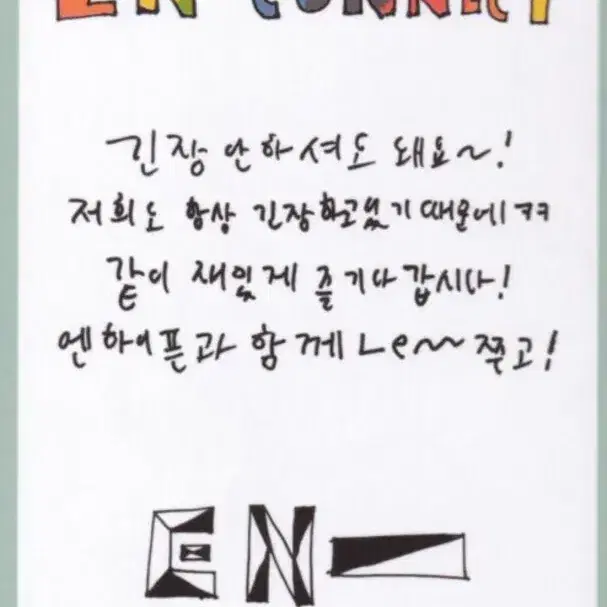 EN-CONNECT
긴장 안하셔도 돼요~!
저희도 항상 긴장하고있기 때문에 ㅋㅋ
같이 재밌게 즐기다 갑시다!
엔하이픈과 함께 Le~~ 쭈고!
EN-